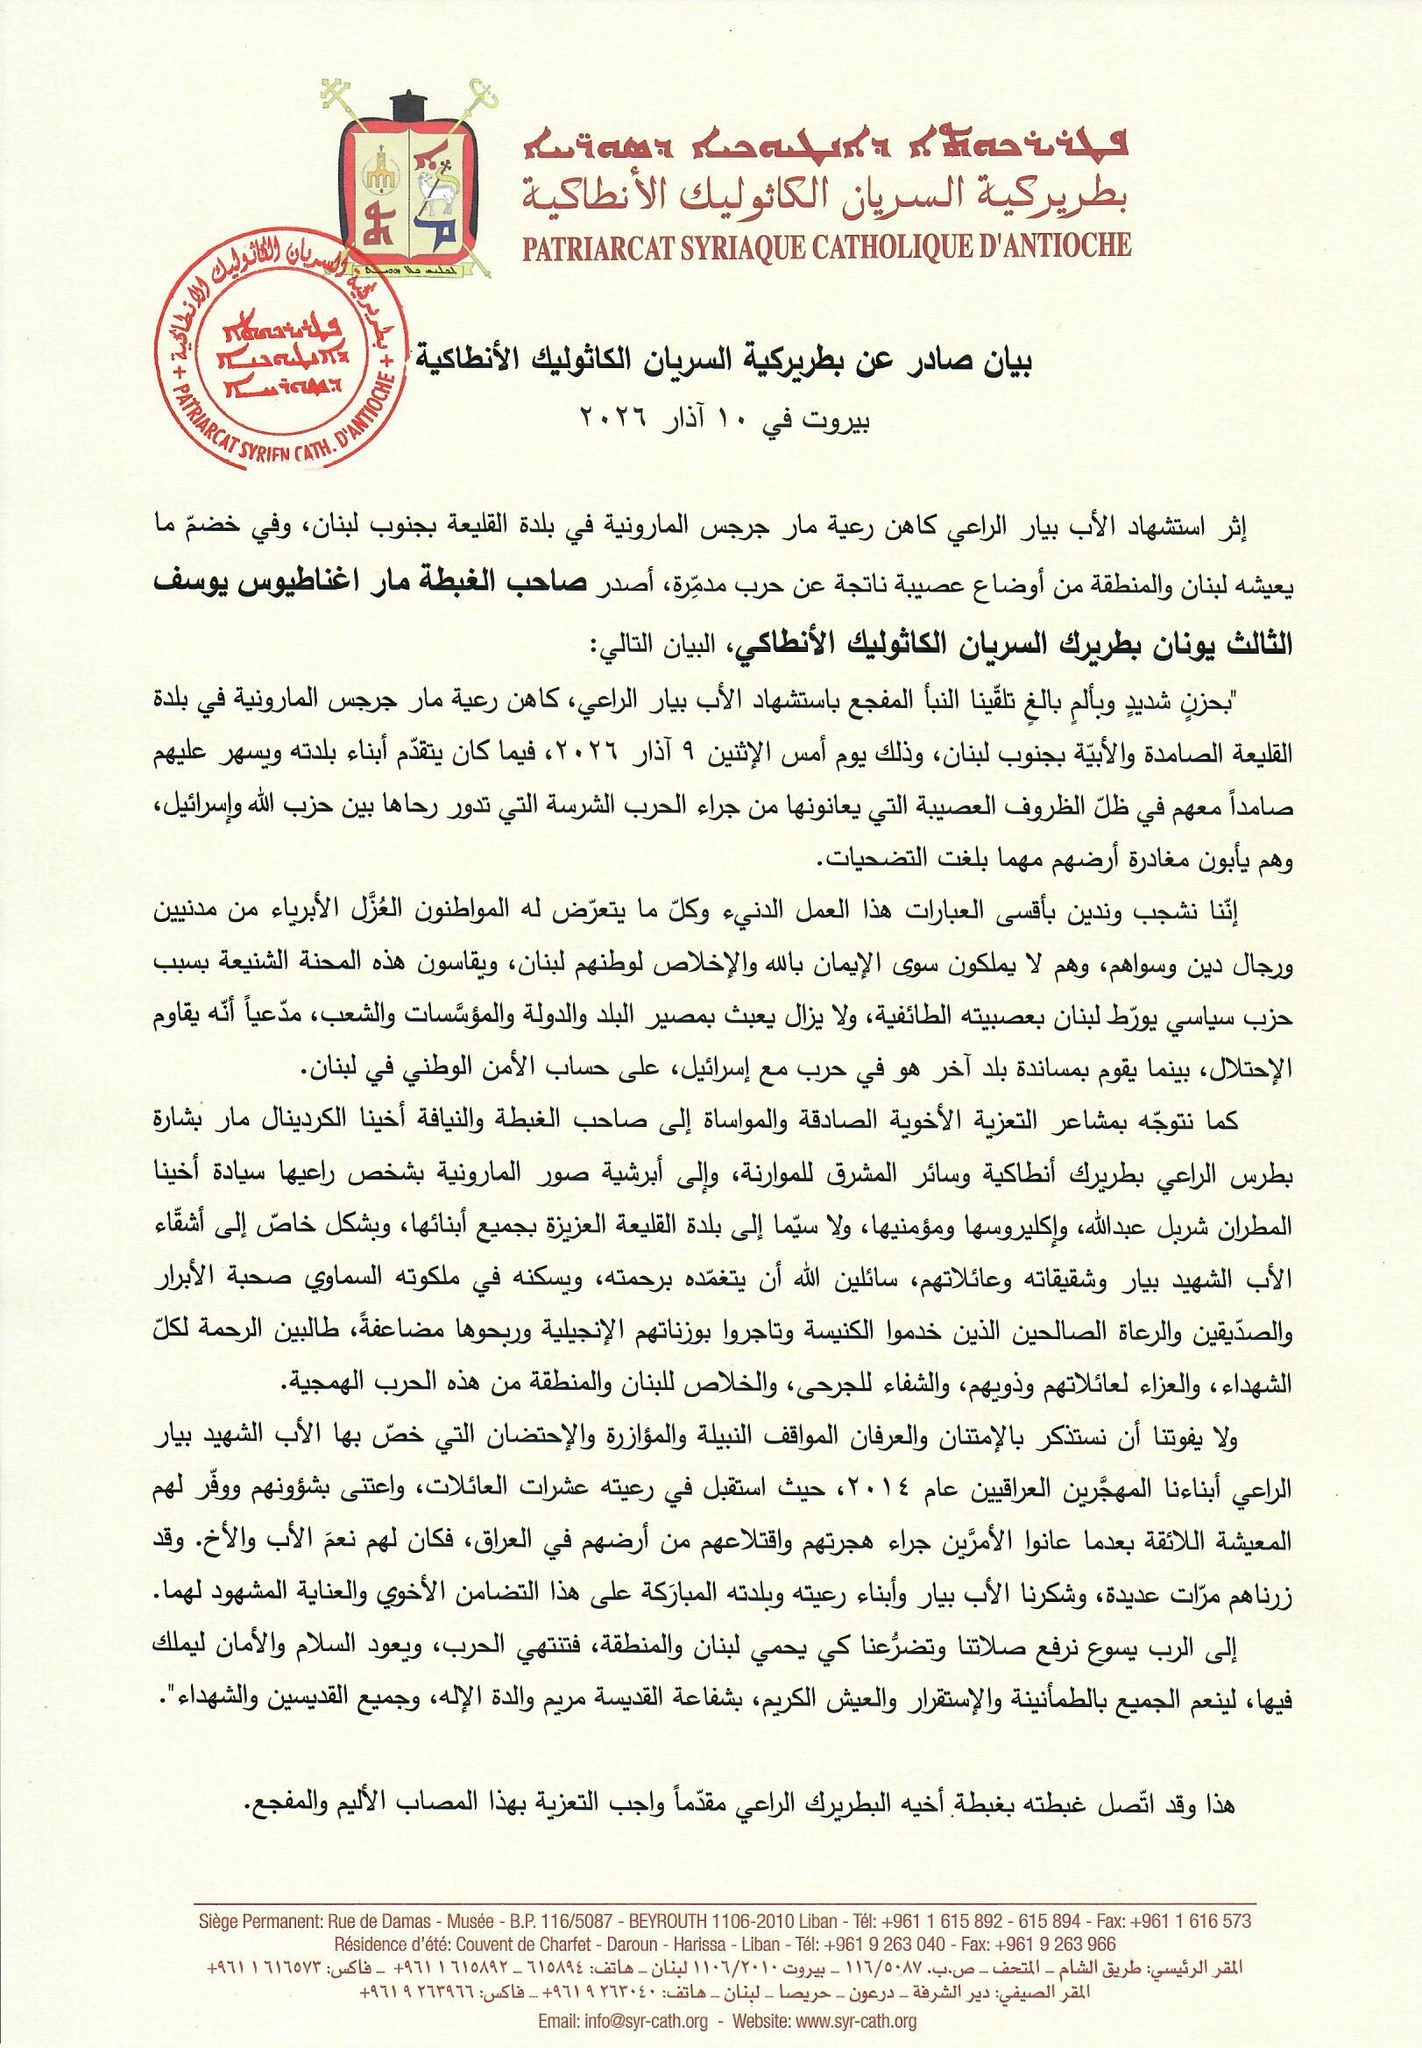 ܦܛܪܝܪܟܘܬܐ ܕܐܢܛܝܘܟܝܐ ܕܣܘܪ̈ܝܝܐ
بطريركية السريان الكاثوليك الأنطاكية
PATRIARCAT SYRIAQUE CATHOLIQUE D'ANTIOCHE
بطريركية السريان الكاثوليك الانطاكية
ܦܛܪܝܪܟܘܬܐ
ܕܐܢܛܝܘܟܝܐ
ܕܣܘܪ̈ܝܝܐ
+ PATRIARCAT SYRIEN CATH. D'ANTIOCHE +
بيان صادر عن بطريركية السريان الكاثوليك الأنطاكية
بيروت في ١٠ آذار ٢٠٢٦
إثر استشهاد الأب بيار الراعي كاهن رعية مار جرجس المارونية في بلدة القليعة بجنوب لبنان، وفي خضمّ ما
يعيشه لبنان والمنطقة من أوضاع عصيبة ناتجة عن حرب مدمّرة، أصدر صاحب الغبطة مار اغناطيوس يوسف
الثالث يونان بطريرك السريان الكاثوليك الأنطاكي، البيان التالي:
"بحزنٍ شديدٍ وبألمٍ بالغٍ تلقّينا النبأ المفجع باستشهاد الأب بيار الراعي، كاهن رعية مار جرجس المارونية في بلدة
القليعة الصامدة والأبيّة بجنوب لبنان، وذلك يوم أمس الإثنين ٩ آذار ٢٠٢٦، فيما كان يتقدّم أبناء بلدته ويسهر عليهم
صامداً معهم في ظلّ الظروف العصيبة التي يعانونها من جراء الحرب الشرسة التي تدور رحاها بين حزب الله وإسرائيل،
وهم يأبون مغادرة أرضهم مهما بلغت التضحيات.
إنّنا نشجب وندين بأقسى العبارات هذا العمل الدنيء وكلّ ما يتعرّض له المواطنون العُزَّل الأبرياء من مدنيين
ورجال دين وسواهم، وهم لا يملكون سوى الإيمان بالله والإخلاص لوطنهم لبنان، ويقاسون هذه المحنة الشنيعة بسبب
حزب سياسي يورّط لبنان بعصبيته الطائفية، ولا يزال يعبث بمصير البلد والدولة والمؤسَّسات والشعب، مدّعياً أنّه يقاوم
الإحتلال، بينما يقوم بمساندة بلد آخر هو في حرب مع إسرائيل، على حساب الأمن الوطني في لبنان.
كما نتوجّه بمشاعر التعزية الأخوية الصادقة والمواساة إلى صاحب الغبطة والنيافة أخينا الكردينال مار بشارة
بطرس الراعي بطريرك أنطاكية وسائر المشرق للموارنة، وإلى أبرشية صور المارونية بشخص راعيها سيادة أخينا
المطران شربل عبدالله، وإكليروسها ومؤمنيها، ولا سيّما إلى بلدة القليعة العزيزة بجميع أبنائها، وبشكل خاصّ إلى أشقّاء
الأب الشهيد بيار وشقيقاته وعائلاتهم، سائلين الله أن يتغمّده برحمته، ويسكنه في ملكوته السماوي صحبة الأبرار
والصدّيقين والرعاة الصالحين الذين خدموا الكنيسة وتاجروا بوزناتهم الإنجيلية وربحوها مضاعفةً، طالبين الرحمة لكلّ
الشهداء، والعزاء لعائلاتهم وذويهم، والشفاء للجرحى، والخلاص للبنان والمنطقة من هذه الحرب الهمجية.
ولا يفوتنا أن نستذكر بالإمتنان والعرفان المواقف النبيلة والمؤازرة والإحتضان التي خصّ بها الأب الشهيد بيار
الراعي أبناءنا المهجَّرين العراقيين عام ٢٠١٤، حيث استقبل في رعيته عشرات العائلات، واعتنى بشؤونهم ووفّر لهم
المعيشة اللائقة بعدما عانوا الأمرَّين جراء هجرتهم واقتلاعهم من أرضهم في العراق، فكان لهم نعمَ الأب والأخ. وقد
زرناهم مرّات عديدة، وشكرنا الأب بيار وأبناء رعيته وبلدته المبارَكة على هذا التضامن الأخوي والعناية المشهود لهما.
إلى الرب يسوع نرفع صلاتنا وتضرُّعنا كي يحمي لبنان والمنطقة، فتنتهي الحرب، ويعود السلام والأمان ليملك
فيها، لينعم الجميع بالطمأنينة والإستقرار والعيش الكريم، بشفاعة القديسة مريم والدة الإله، وجميع القديسين والشهداء".
هذا وقد اتّصل غبطته بغبطة أخيه البطريرك الراعي مقدّماً واجب التعزية بهذا المصاب الأليم والمفجع.
Siège Permanent: Rue de Damas - Musée - B.P. 116/5087 - BEYROUTH 1106-2010 Liban - Tél: +961 1 615 892 - 615 894 - Fax: +961 1 616 573
Résidence d'été: Couvent de Charfet - Daroun - Harissa - Liban - Tél: +961 9 263 040 - Fax: +961 9 263 966
المقر الرئيسي: طريق الشام – المتحف – ص.ب. ١١٦/٥٠٨٧ – بيروت ١١٠٦/٢٠١٠ لبنان – هاتف: ٦١٥٨٩٤ – ٦١٥٨٩٢ ١ ٩٦١+ – فاكس: ٦١٦٥٧٣ ١ ٩٦١+
المقر الصيفي: دير الشرفة – درعون – حريصا – لبنان – هاتف: ٢٦٣٠٤٠ ٩ ٩٦١+ – فاكس: ٢٦٣٩٦٦ ٩ ٩٦١+
Email: info@syr-cath.org - Website: www.syr-cath.org